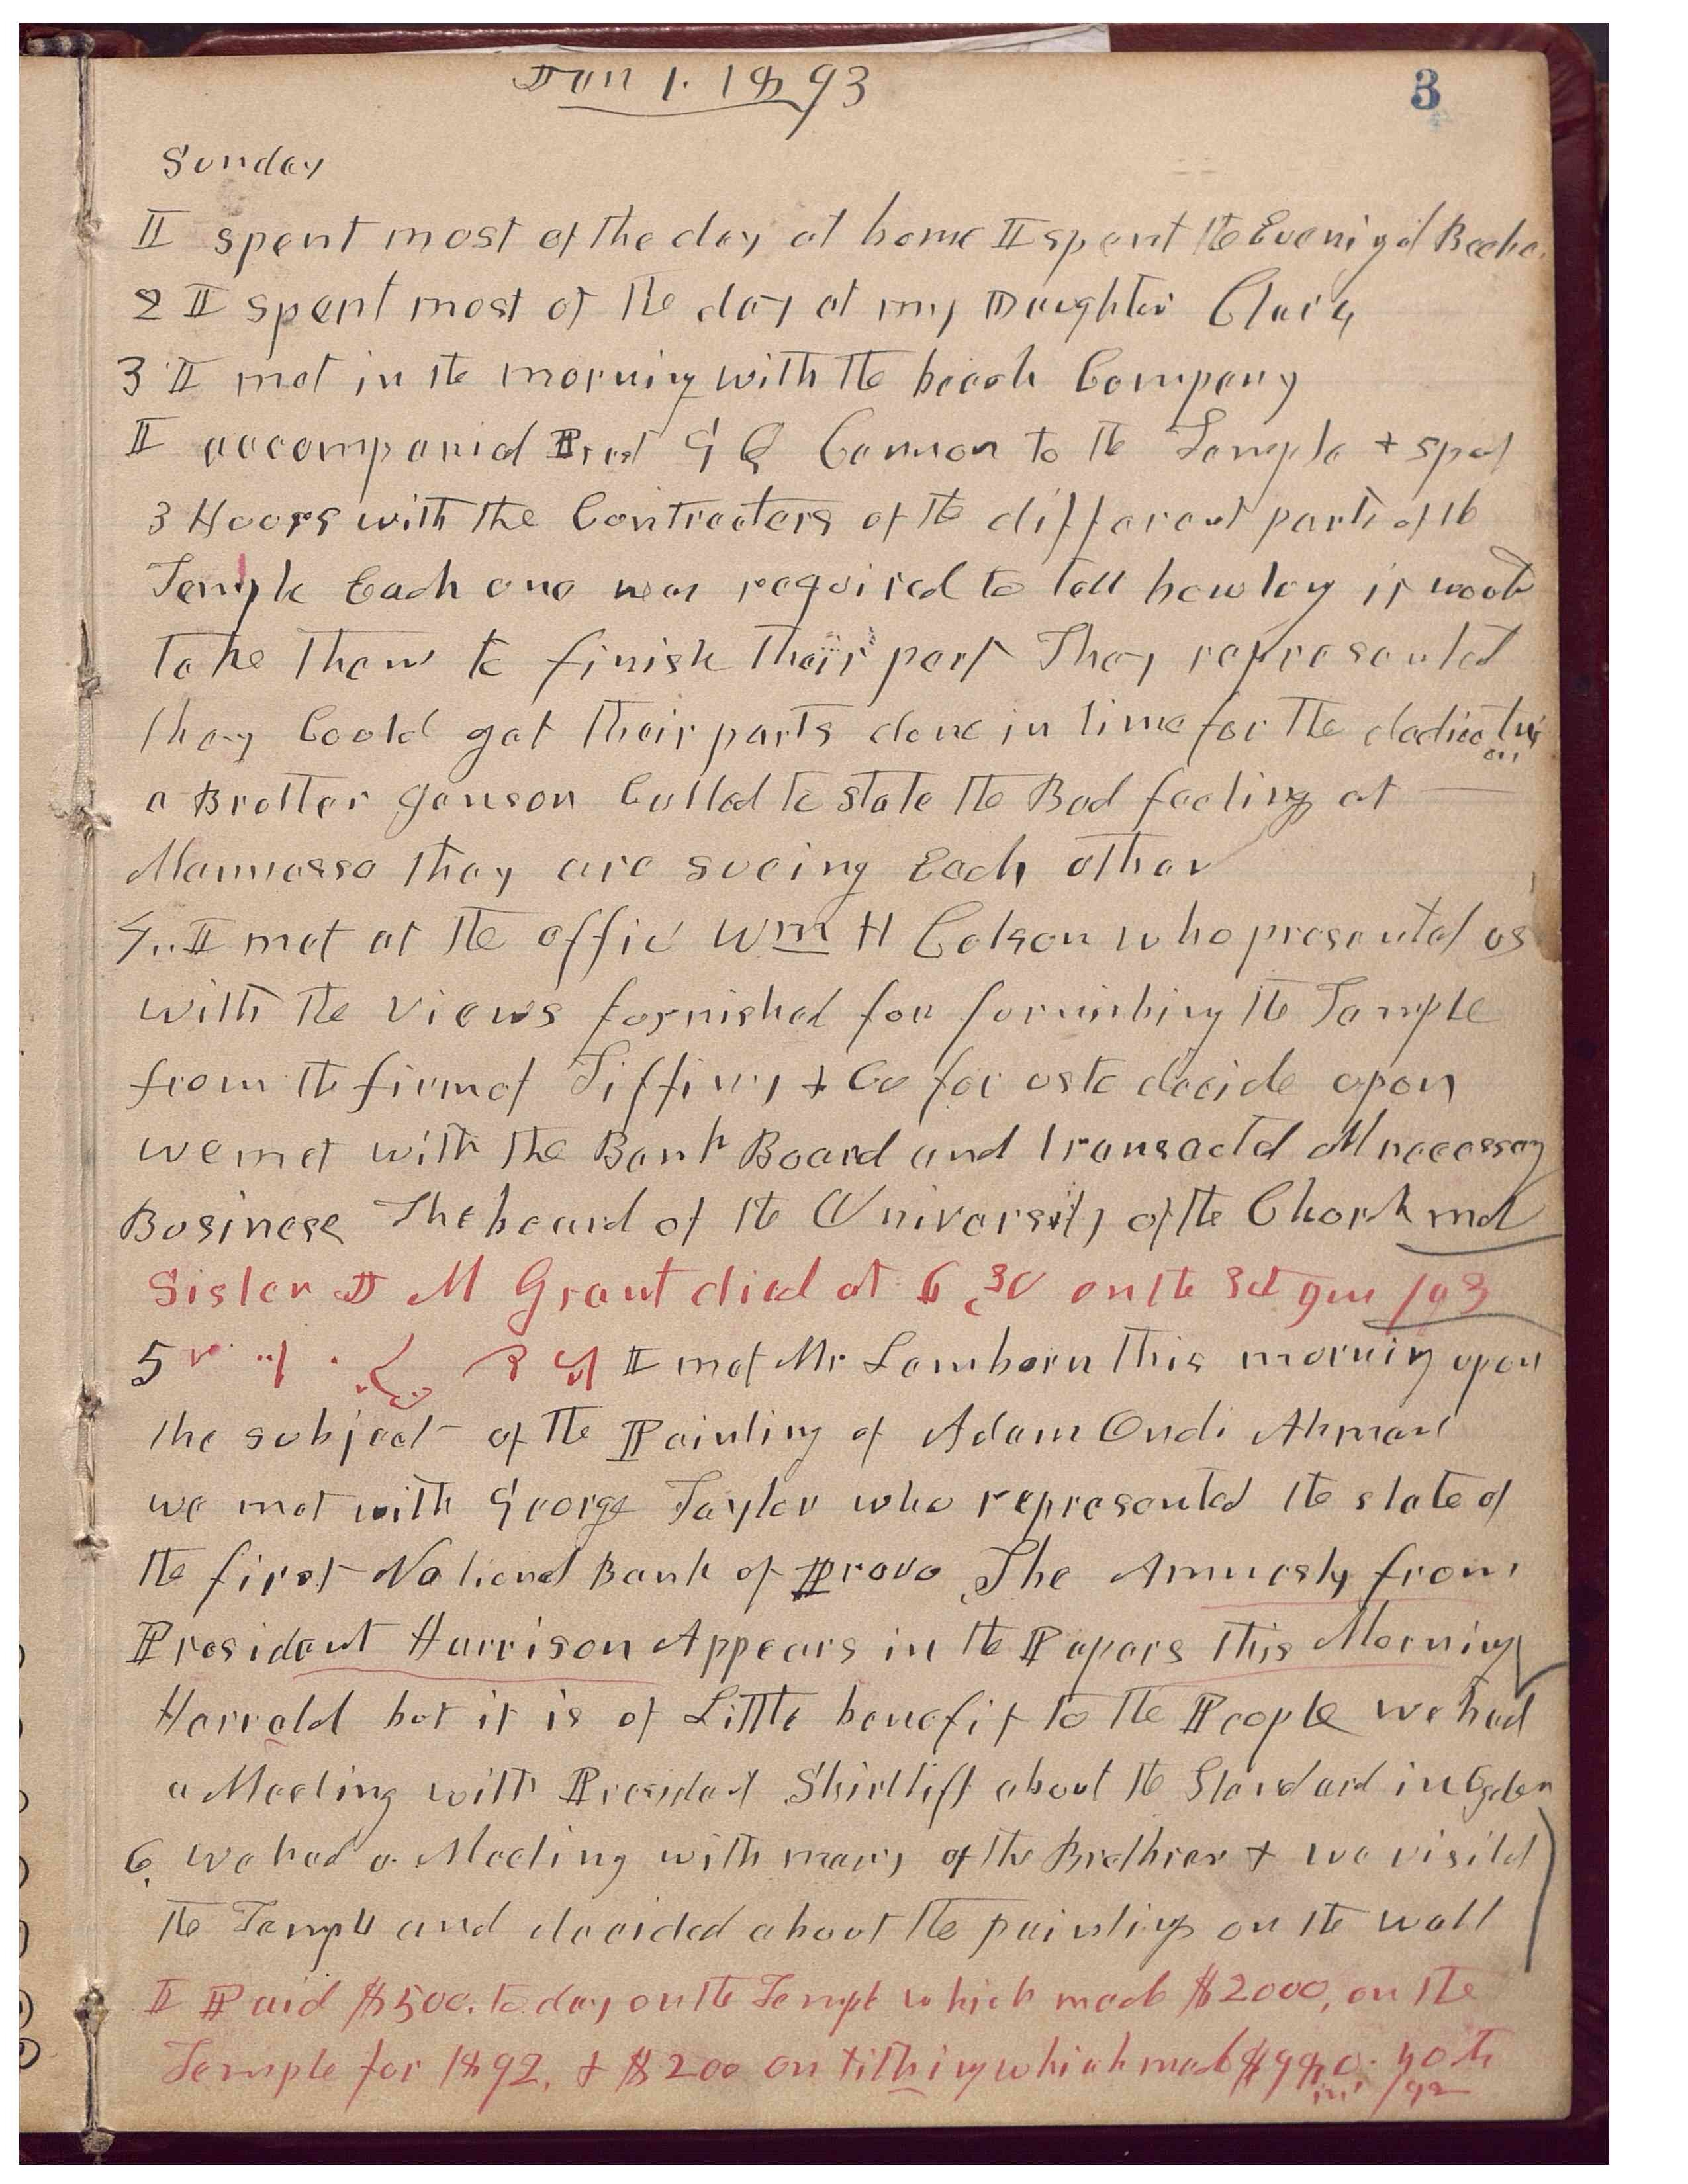 Jan 1. 1893
3
Sunday
I spent most of the day at home I spent the Evening at
2 I spent most of the day at my Daughter Clara
3 I met in the morning with the beach Company
I accompanid Prest G Q Cannon to the Temple + spet
3 Hours with the Contracters of the different parts of th
Temple Each one was required to tell how long it would
take them to finish their part They represented
they Could get their parts done in time for the dedication
a Brother Jenson Called to state the Bad feeling at
Mannassa they are sueing Each other
4.. I met at the offic Wm H Colson who presented us
with the views furnished for furnishing the Temple
from the firm of Tiffiny & Co for us to decide upon
we met with the Bank Board and transacted All necessary
Business The board of the University of the Church met
Sister D M Grant died at 6 30 on the 3d Jan /93
5 I met Mr Lamborn this morning upon
the subject of the Painting of Adam Ondi Ahman
we met with George Taylor who represented the state of
the first National Bank of Provo The Amnesty from
President Harrison Appears in the Papers this Morning
Herrald but it is of Little benefit to the People we had
a Meeting with President Shirtliff about the Standard in Ogden
6. we had a Meeting with many of the Brethren + we visited
the Temple and decided about the paintings on the wall
I Paid $500. to day on the Temple which made $2000, on the
Temple for 1892, + $200 on tithing which made $980. to
/92